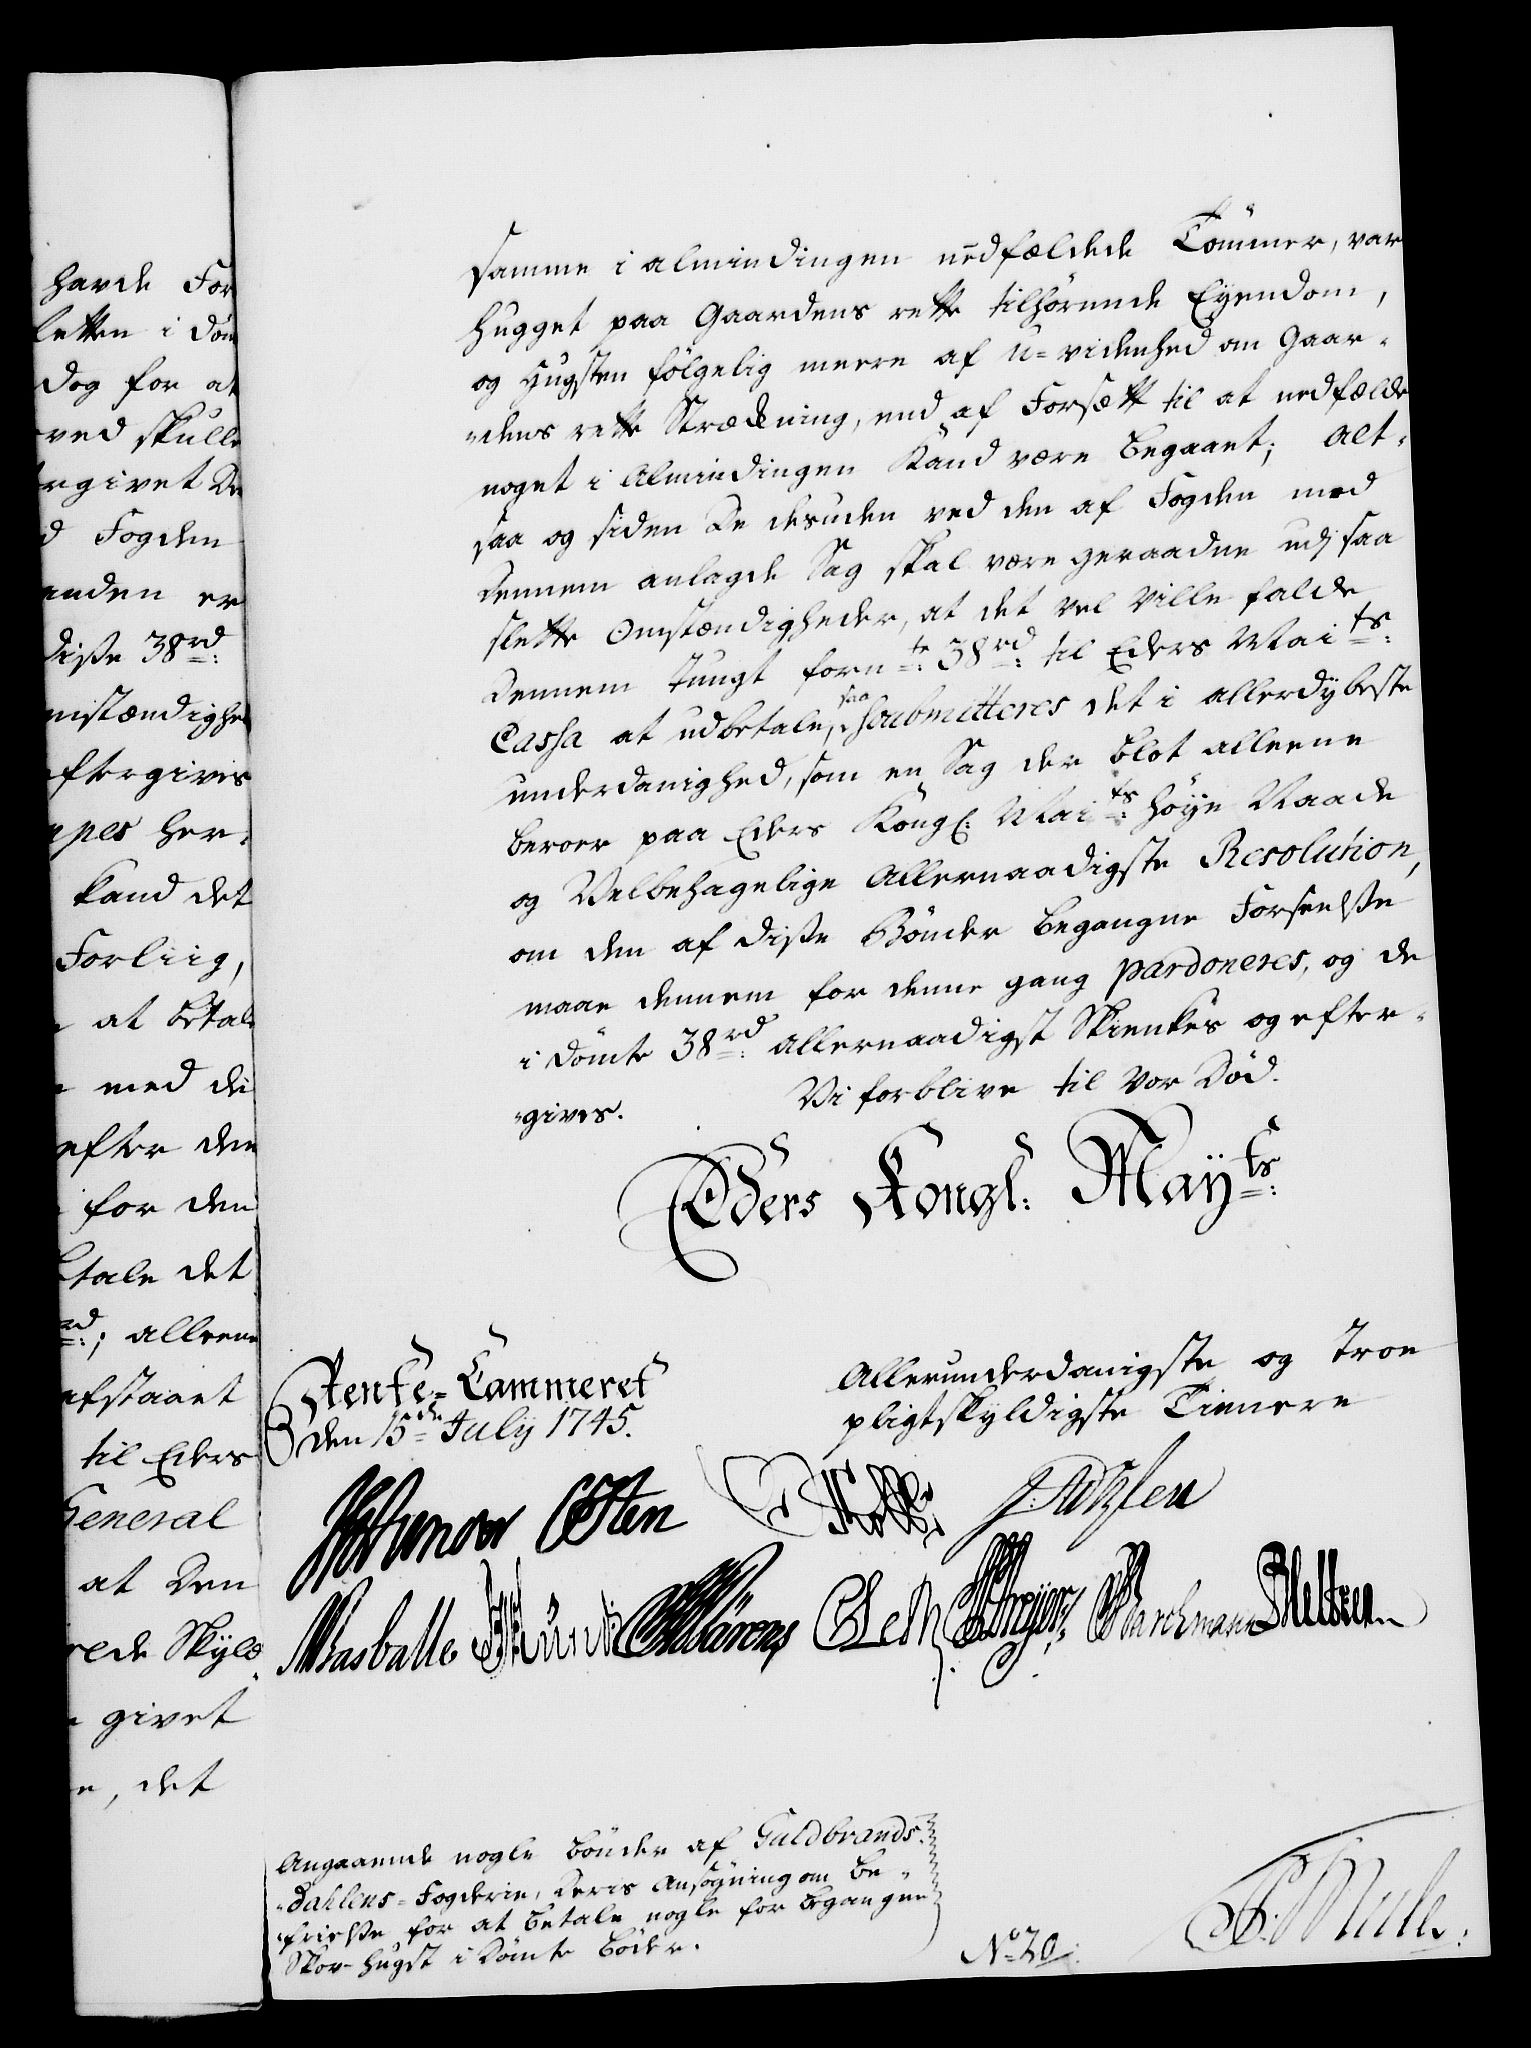 havde For
letten i döm
dog for at
ved skulle
rgivet De
d Fogden
anden er
disse 38rd:
mstændighe
eftergives
epes her,
kand det
Forliig,
at betale
med di
efter den
for den
tale det
rd:; alleene
afstaaet
til Eders
General
at den
rede Skyld
givet
e, det
samme i almindingen nedfældede Tömmer, var
hugget paa Gaardens rette tilhörende Eyendom,
og Hugsten fölgelig meere af U-videnhed om Gaar-
-dens rette Strækning, end af Forsætt til at nedfælde
noget i Almindingen Kand være begaaet; alt-
saa og siden De desuden ved den af Fogden mod
Dennem anlagde Sag skal være geraadne udj saa
slette Omstændigheder, at det vel ville falde
Dennem tungt fornte: 38rd: til Eders Maits:
Cassa at udbetale, saa soubmitteres det i allerdybeste
underdanighed, som en Sag der blot alleene
beroer paa Eders Kongl: Maits: höye Naade
og Velbehagelige Allernaadigste Resolution,
om den af disse Bönder begangne Forseelse
maae dennem for denne gang pardoneres, og de
idömte 38rd: allernaadigst Skienkes og efter-
-gives. Vi forblive til vor Död.
Eders Kongl: Mayts:
Rente-Cammeret
den 15de July 1745.
Allerunderdanigste og troe
pligtskyldigste Tienere
Osten
Basballe CLeth Barchmann
Angaaende nogle bönder af Guldbrands-
-dahlens-Fogderie, deris Ansögning om be-
-frielse for at betale nogle for begangne
Skov-hugst idömte böder.
No 20.